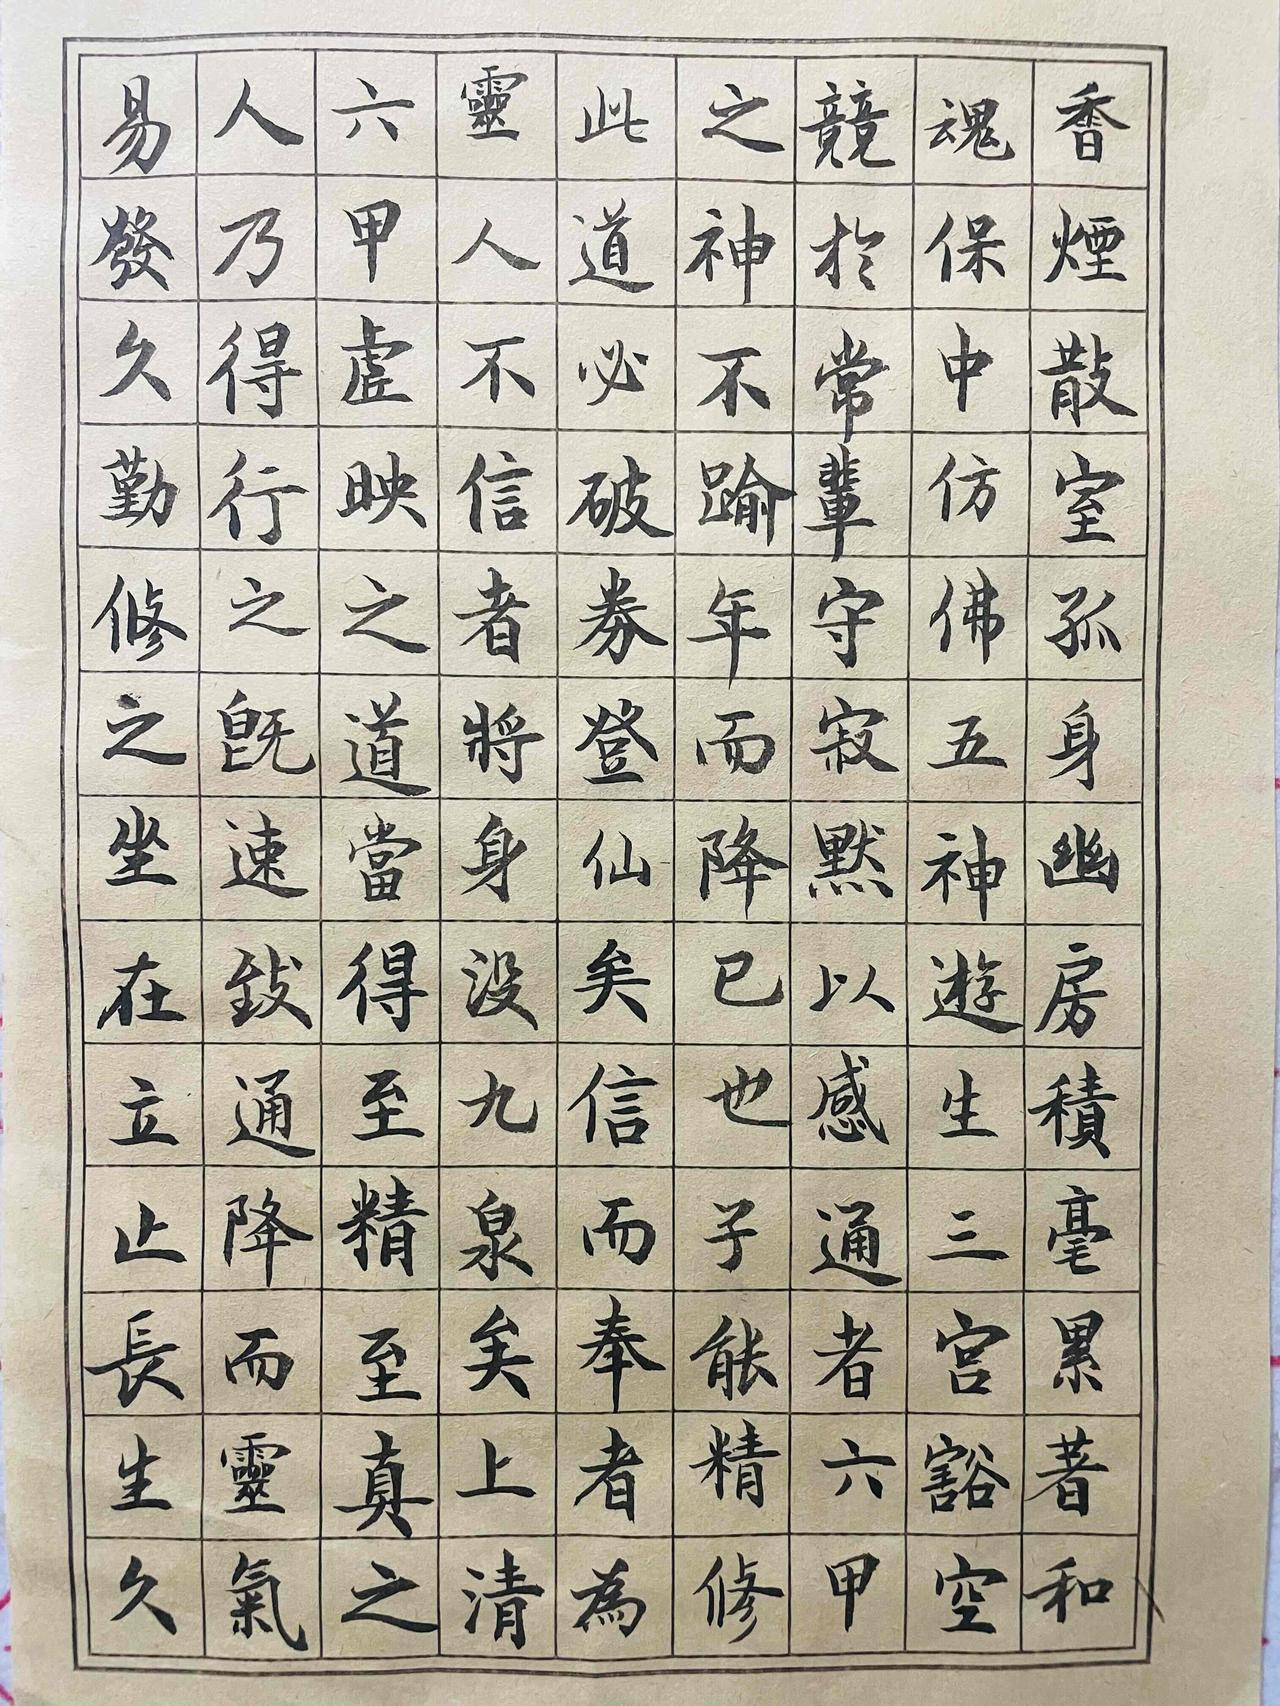 香煙散室孤身幽房積毫累著和
魂保中仿佛五神遊生三宮豁空
競於常輩守寂默以感通者六甲
之神不踰年而降已也子能精修
此道必破券登仙矣信而奉者為
靈人不信者將身没九泉矣上清
六甲虛映之道當得至精至真之
人乃得行之既速致通降而靈氣
易發久勤修之坐在立止長生久